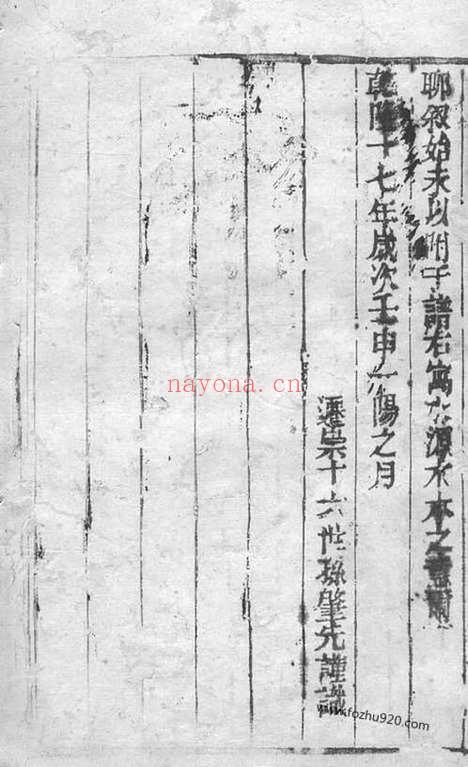 聊叙始末以附于譜右寓水源木本之意爾
乾隆十七年歲次壬申陽之月
遷崇十六世孫肇先謹識
nayona.cn
www.kfozhu920.com